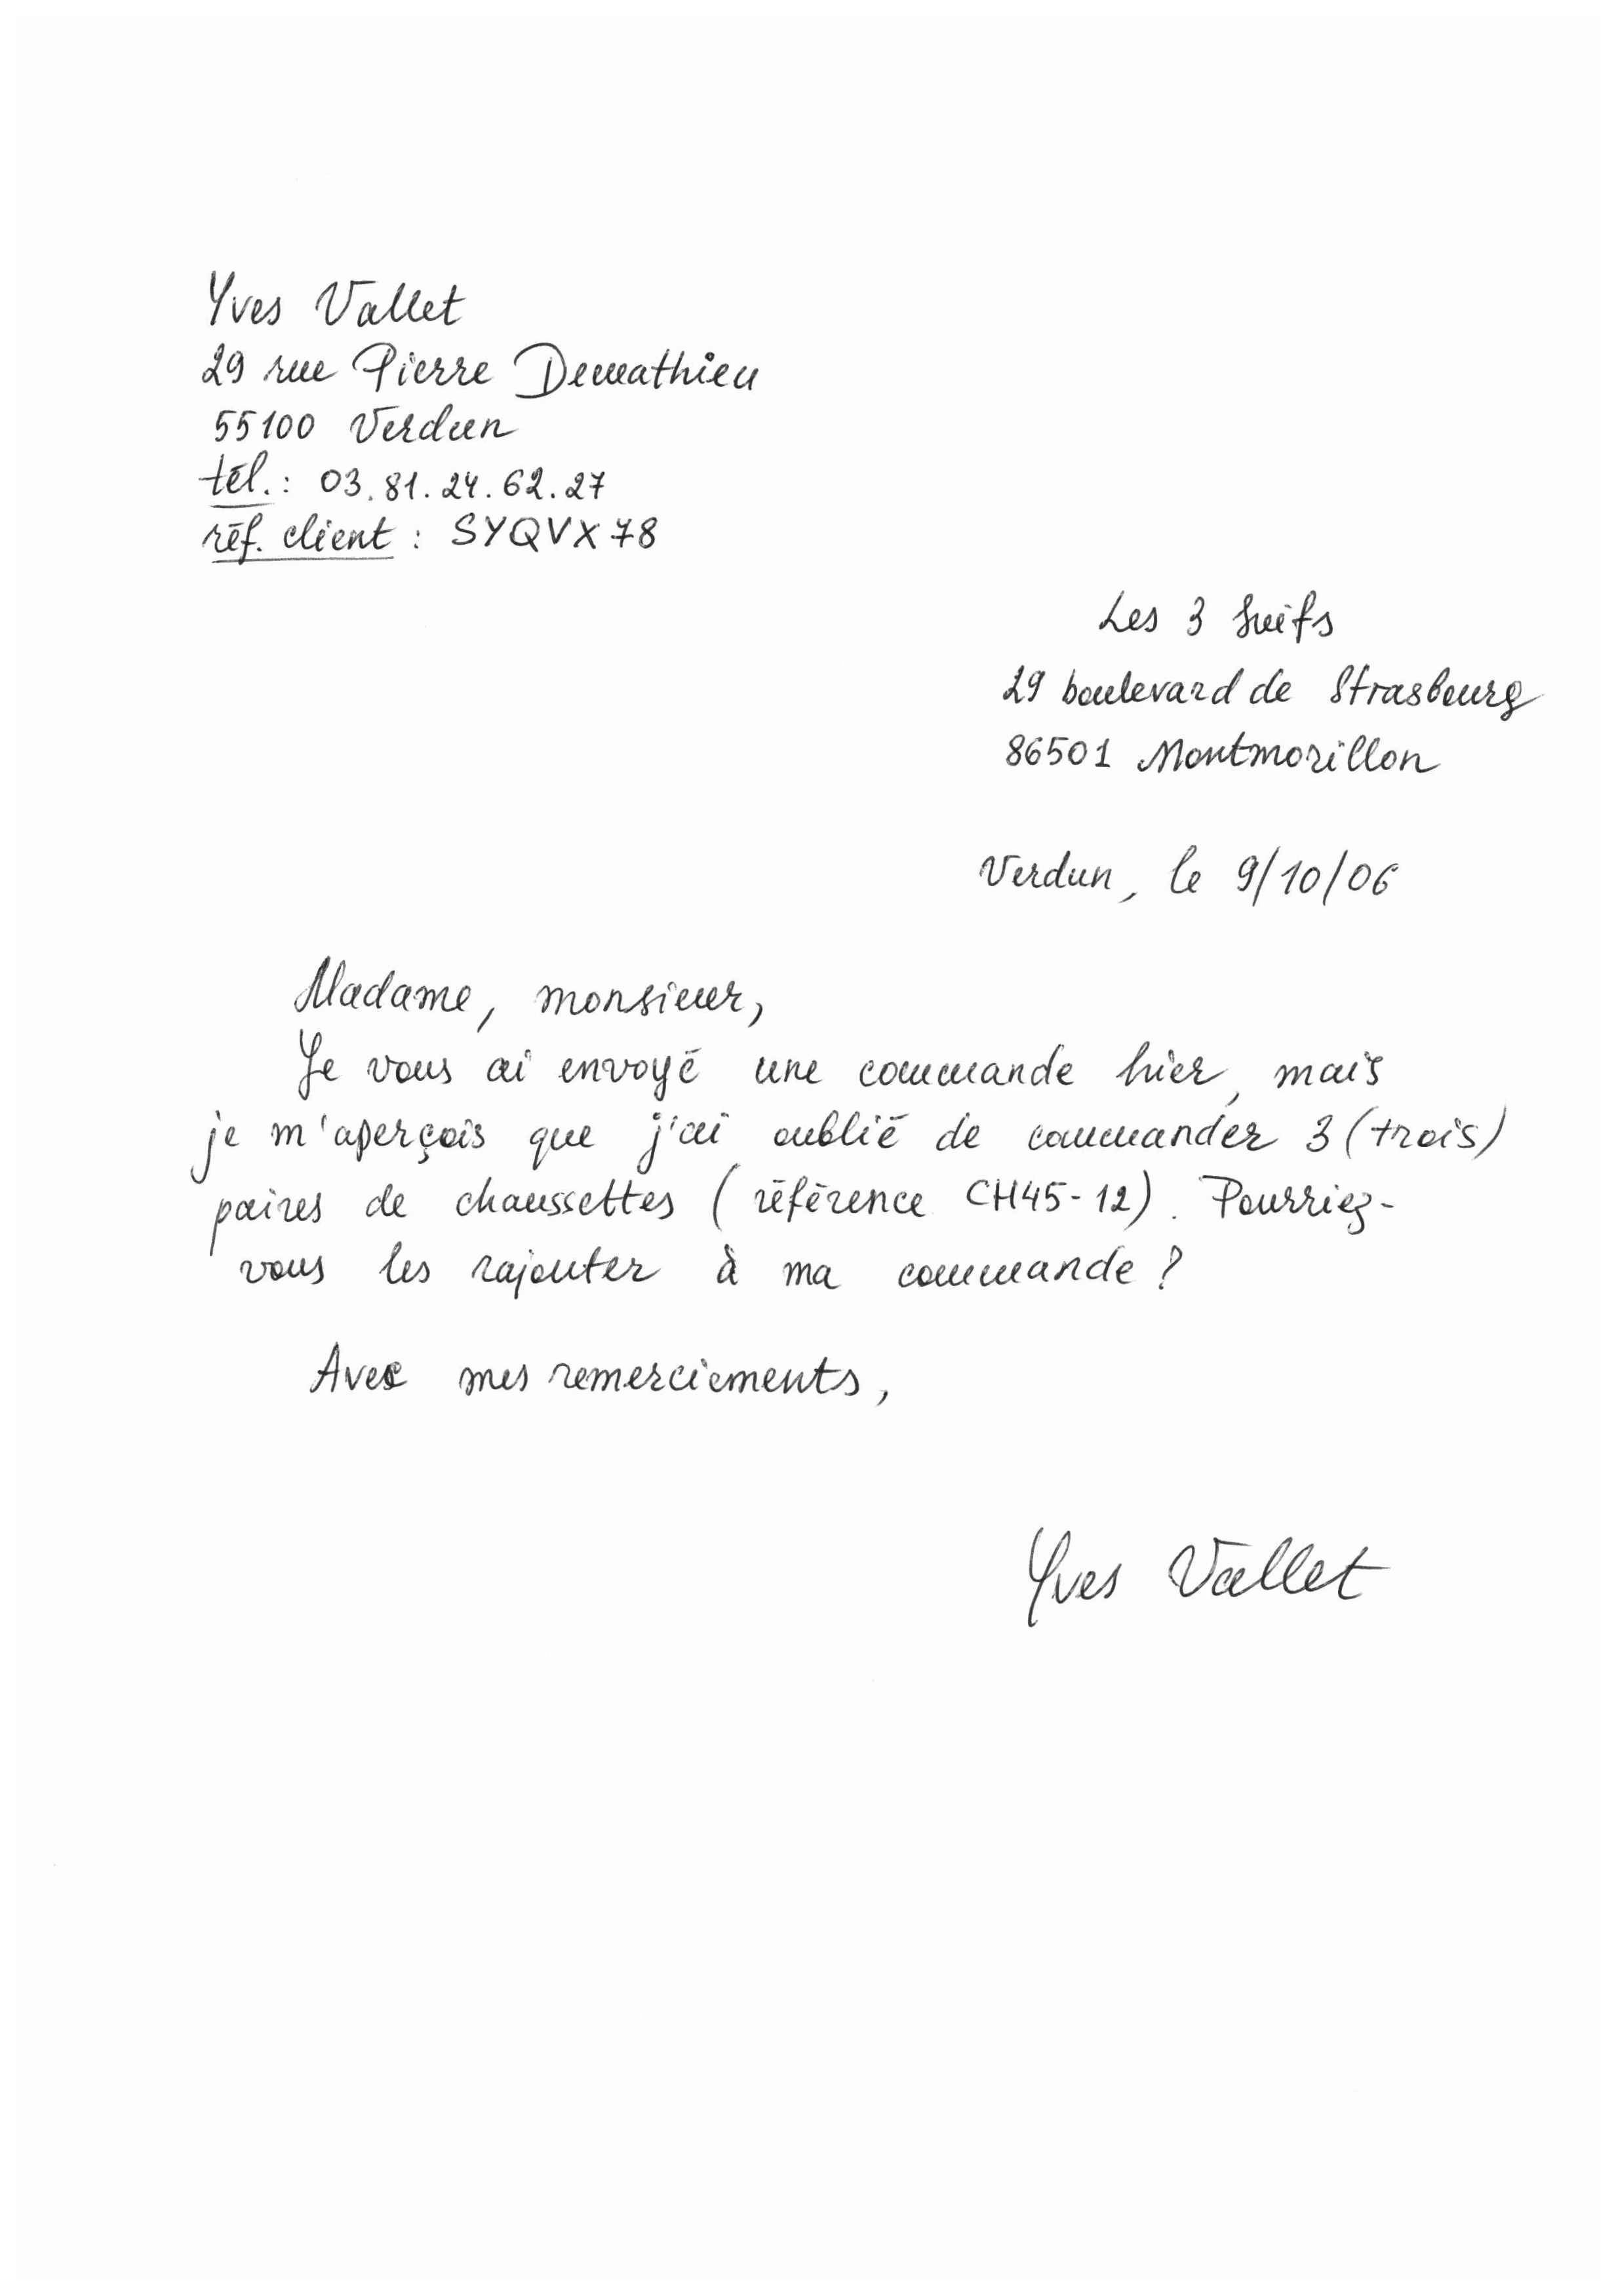 Yves Vallet
29 rue Pierre Demathieu
55100 Verdun
tél. : 03.81.24.62.27
réf. client : SYQVX78
Les 3 Suifs
29 boulevard de Strasbourg
86501 Montmorillon
Verdun, le 9/10/06
Madame, monsieur,
Je vous ai envoyé une commande hier, mais
je m'aperçois que j'ai oublié de commander 3 (trois)
paires de chaussettes (référence CH45-12). Pourriez-
vous les rajouter à ma commande ?
Avec mes remerciements,
Yves Vallet